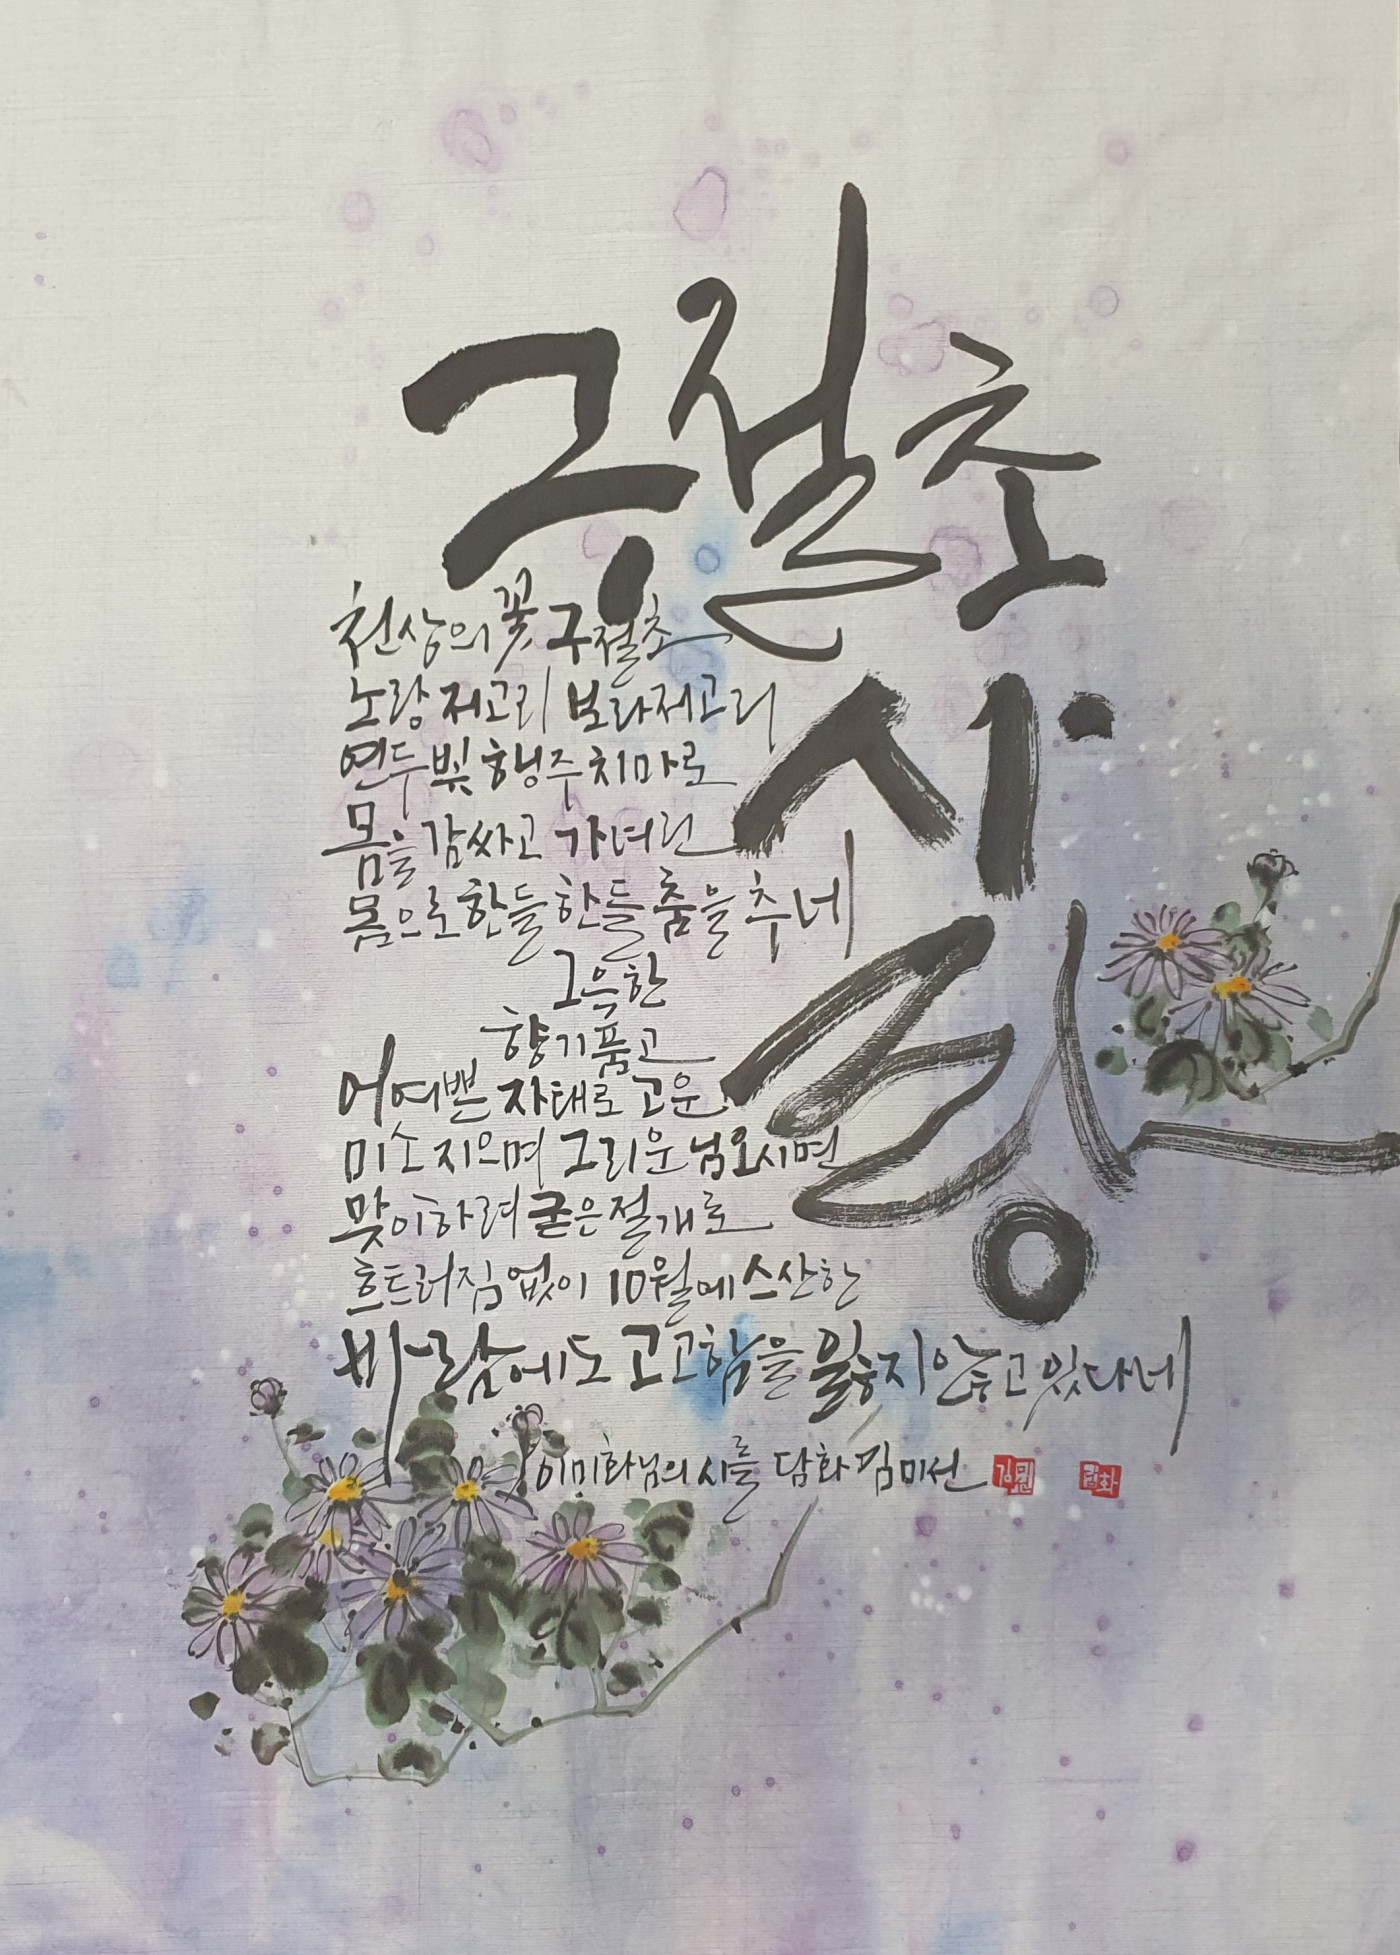 구절초
사랑
천상의 꽃 구절초
노랑 저고리 보라저고리
연두빛 행주치마로
몸을 감싸고 가녀린
몸으로 한들한들 춤을 추네
그윽한
향기품고
어여쁜 자태로 고운
미소 지으며 그리운 님 오시면
맞이하려 굳은 절개로
흐트러짐 없이 10월에 스산한
바람에도 고고함을 잃지 않고 있다네
이미화님의 시를 담화 김미선
담화